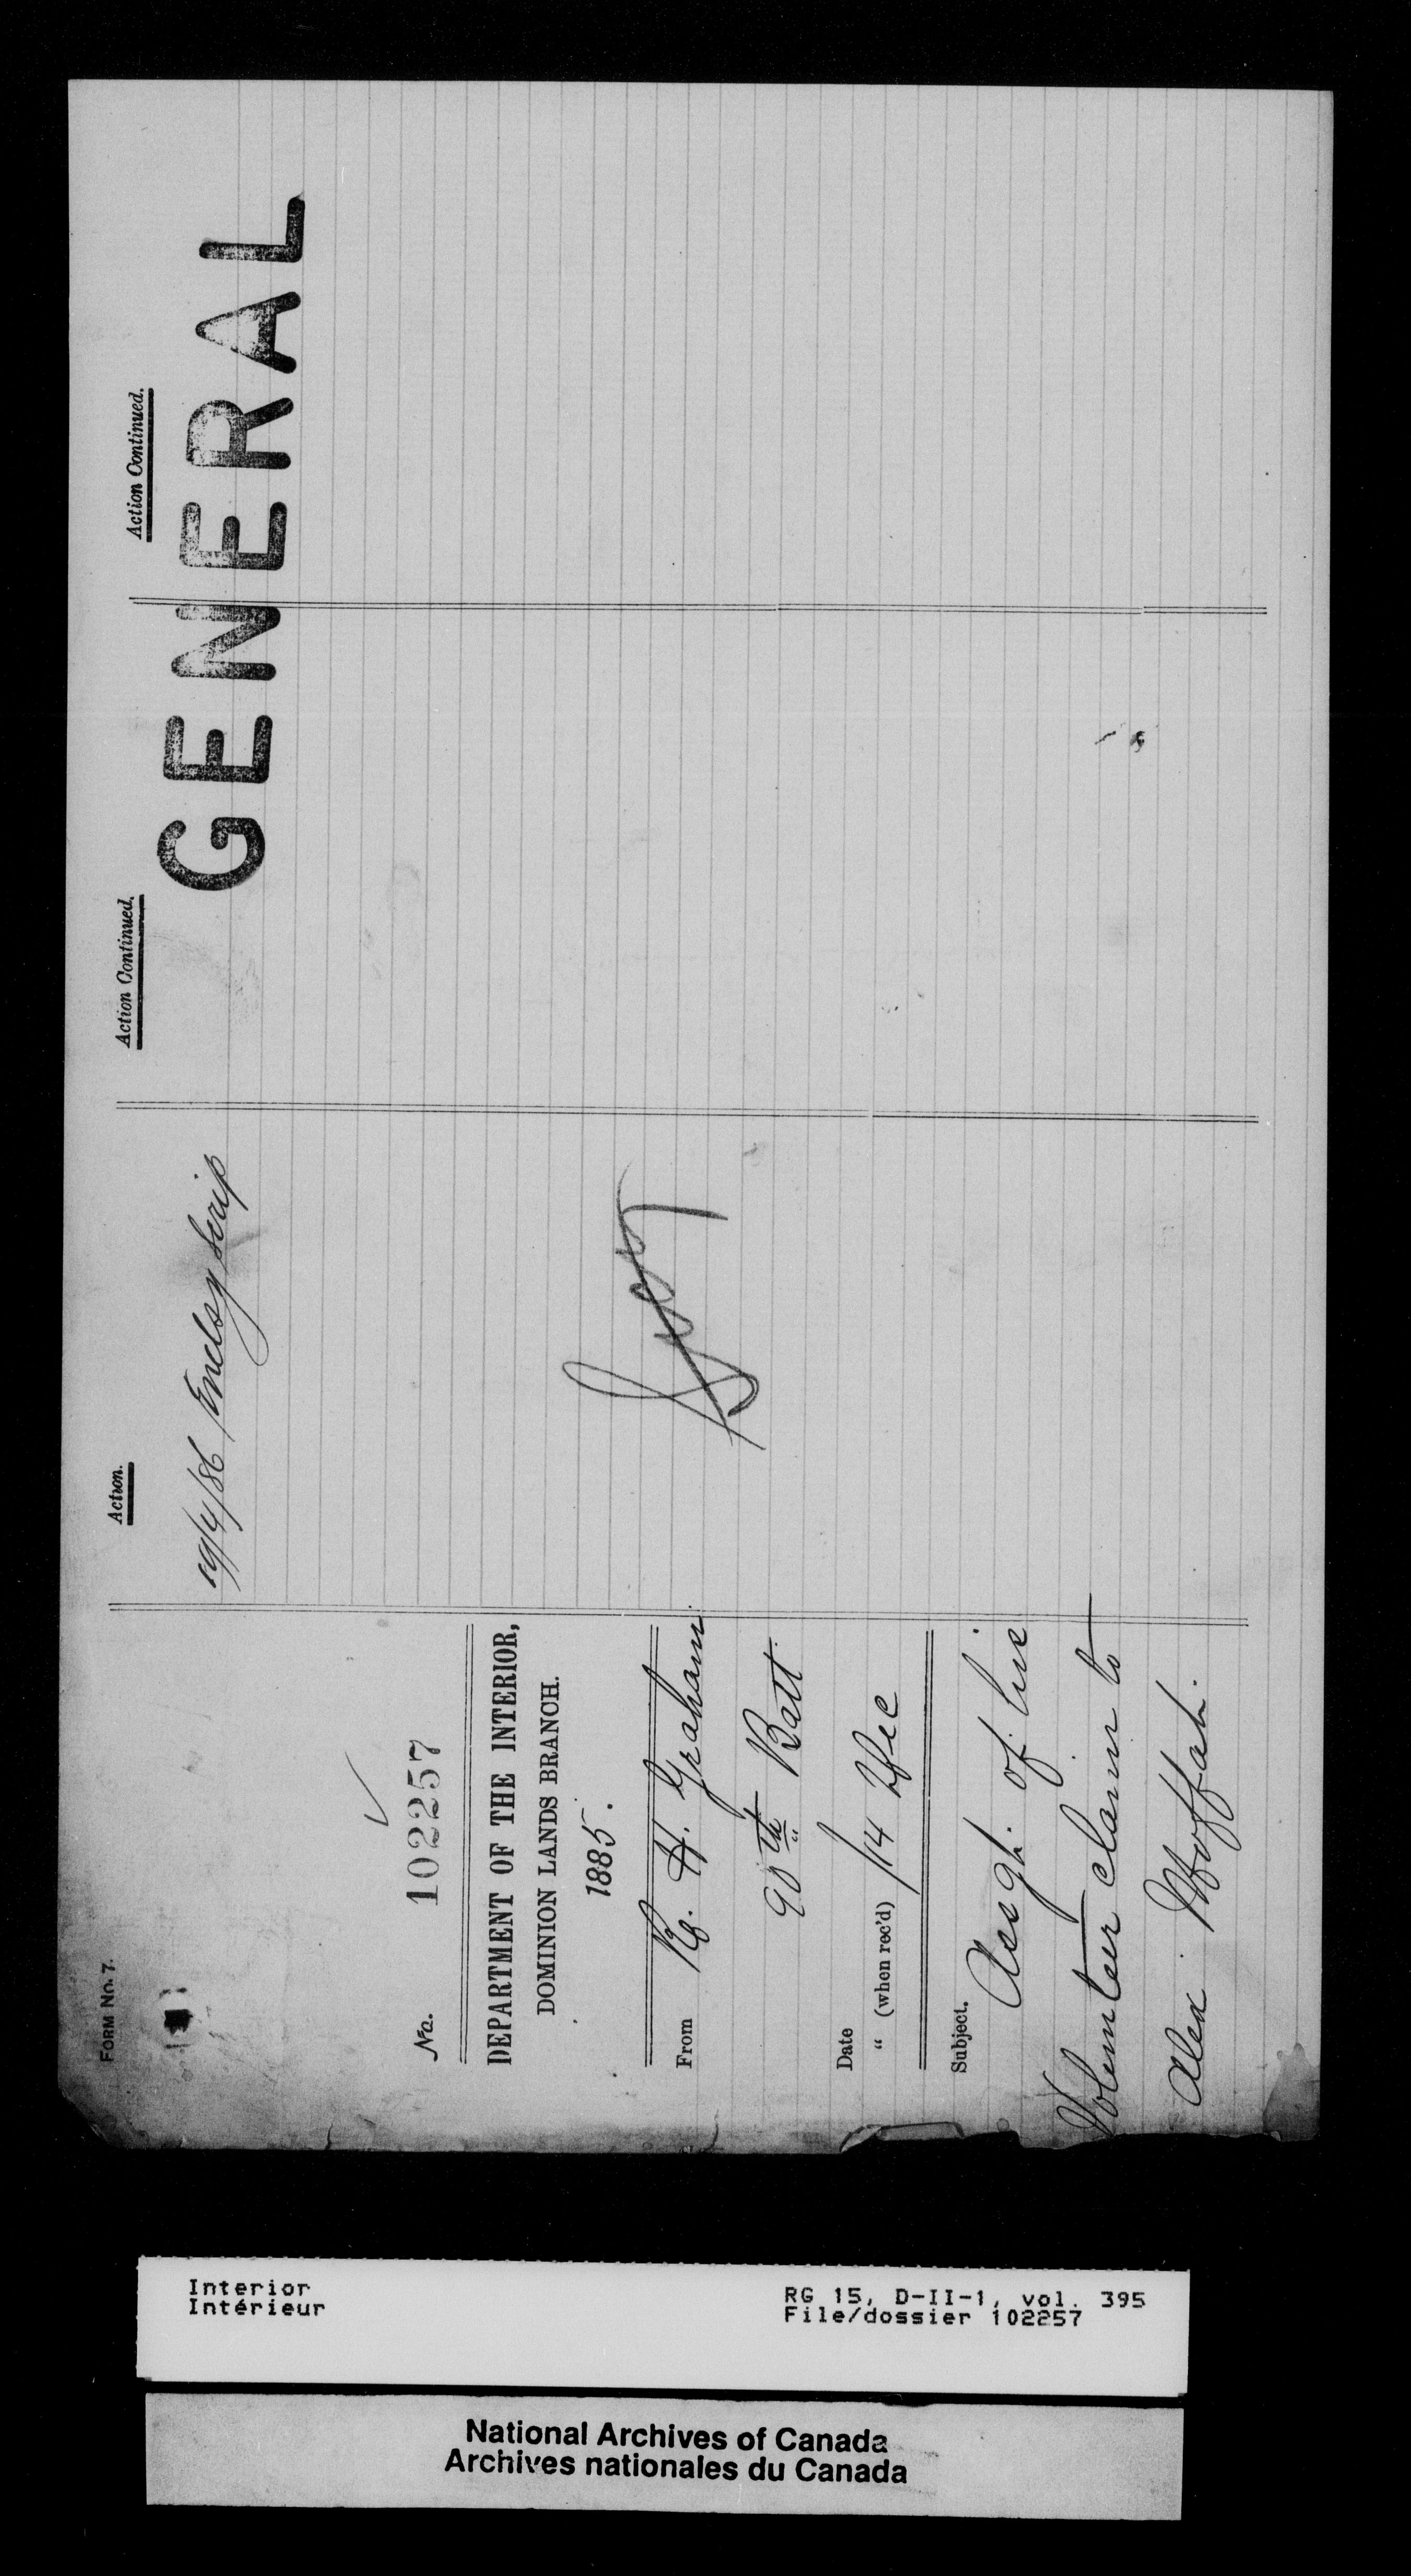 FORM No. 7.
No. 102257
DEPARTMENT OF THE INTERIOR,
DOMINION LANDS BRANCH.
1885.
From R. H. Graham
90th Batt
Date
" (when rec'd) 14 Dec
Subject.
Assgt. of his
Volunteer claim to
Alex. Moffatt.
Action.
19/4/86 Enclsg Scrip
Action Continued.
Action Continued.
GENERAL
Interior
Intérieur
RG 15, D-II-1, vol. 395
File/dossier 102257
National Archives of Canada
Archives nationales du Canada